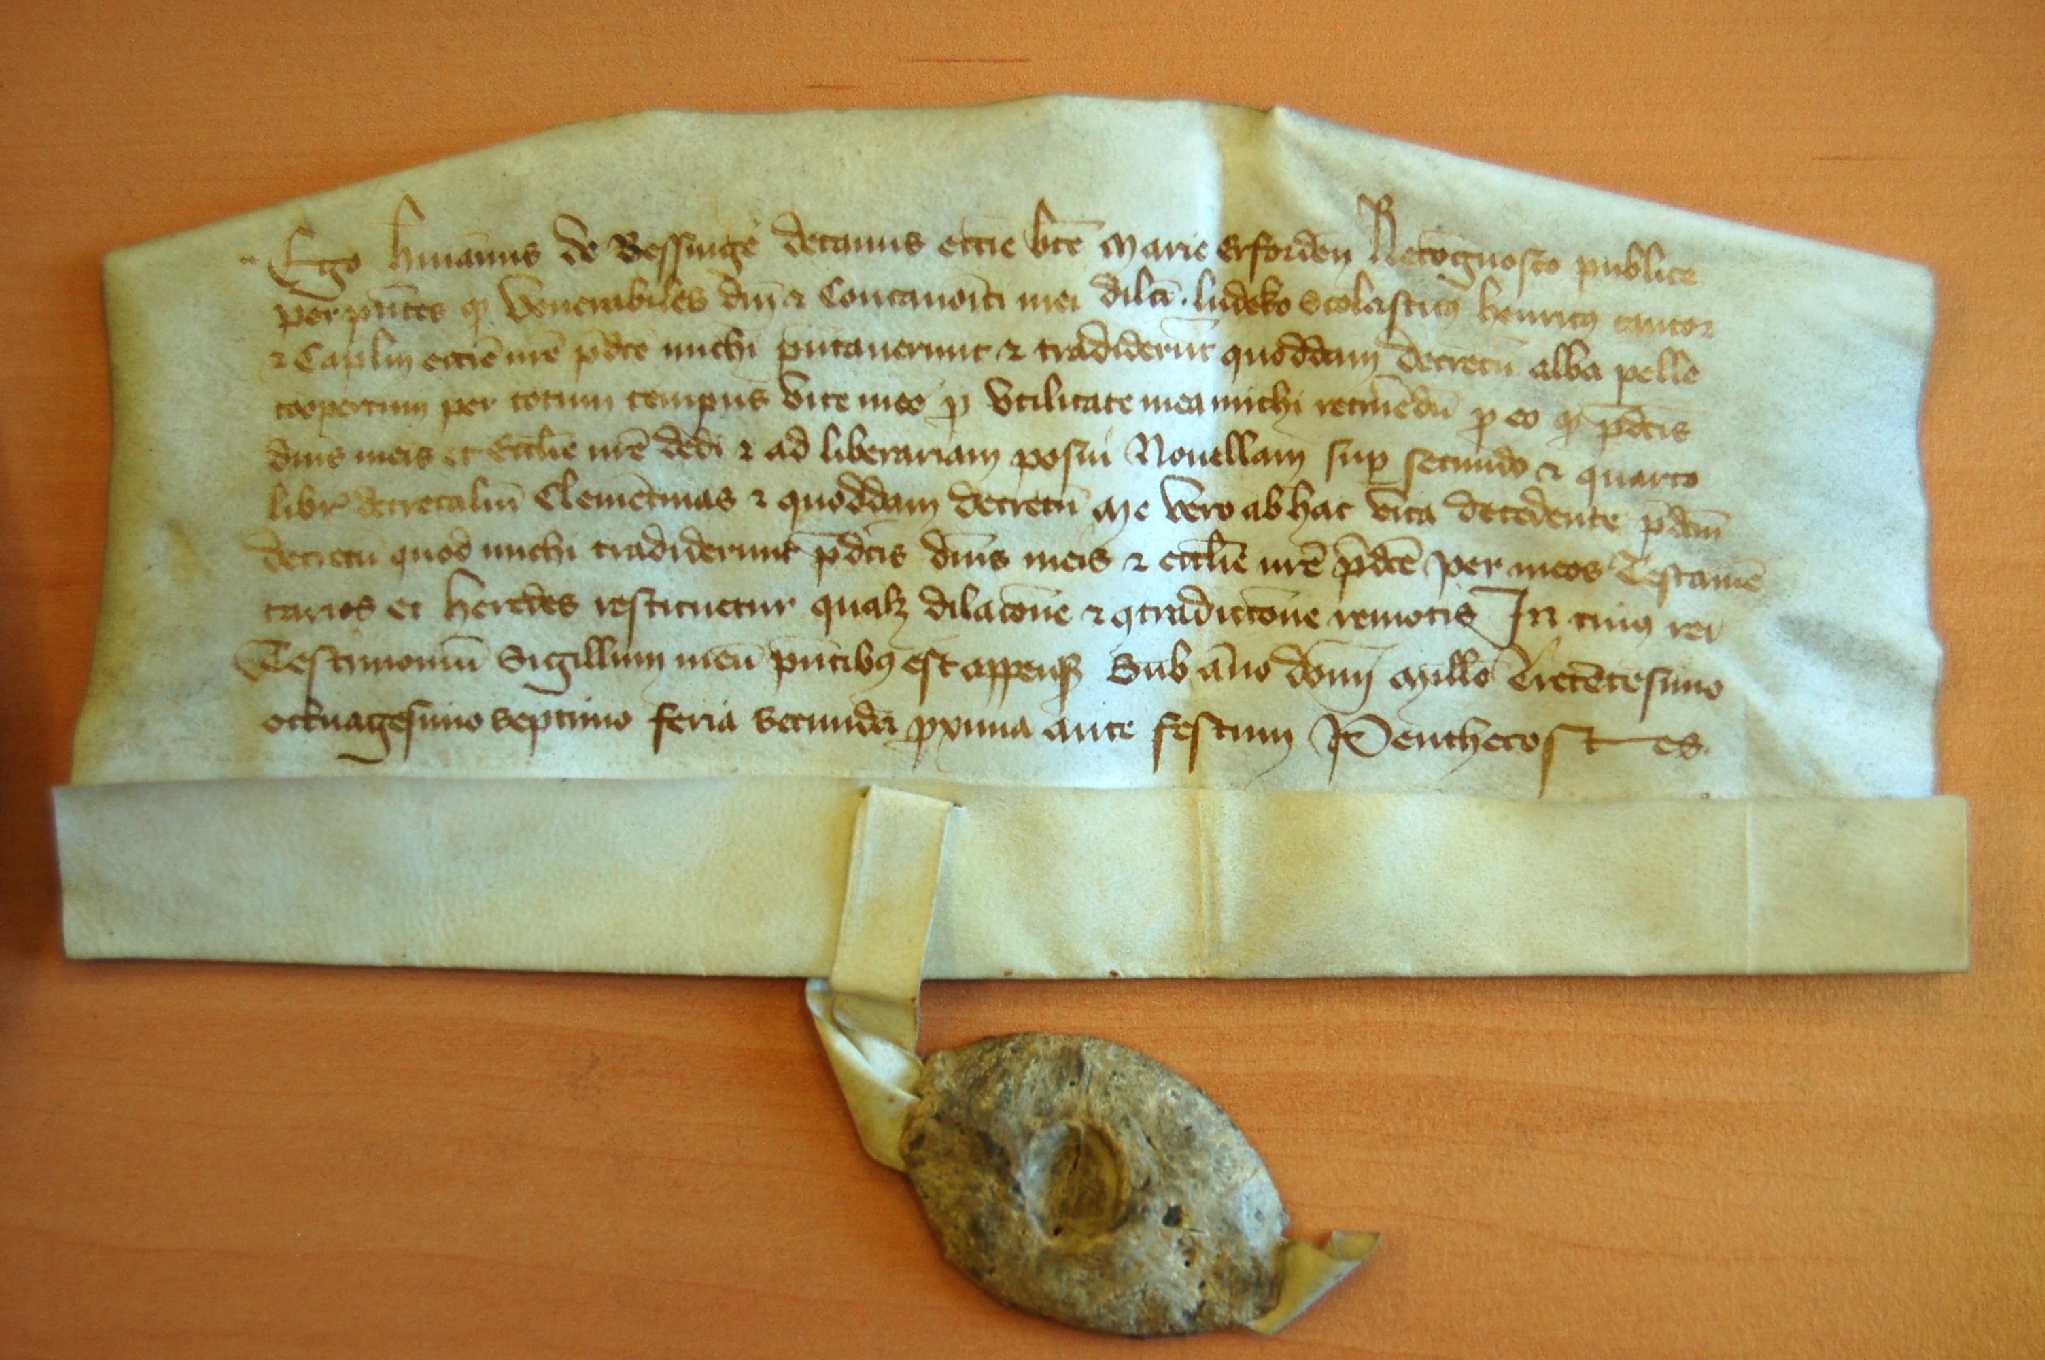 Ego hmānus de Bessinge decanus eccie bte Marie Erforden Recognosco publice
per pn̄tes qͥ venerabiles dn̄i ⁊ Concanoīci mei dilc̄i ludeko Scolasticꝰ henricꝰ cantor
⁊ Caplm eccie nr̄e p̄dc̄e michi pn̄tauerunt ⁊ tradiderūt quoddam decretū alba pelle
coopertum per totum tempus vite mee ꝓ vtilitate mea michi retinēdū ꝓ eo qͥ p̄dc̄is
dn̄is meis et Ecclie nr̄e dedi ⁊ ad liberariam posui Nouellam suꝑ secundo ⁊ quarto
libr̄ decretaliū Clemētinas ⁊ quoddam decretū Me vero ab hac vita decedente p̄dc̄m
decretū quod michi tradiderunt p̄dc̄is dn̄is meis ⁊ ecclie nr̄e p̄dc̄e per meos Testamē
tarios et heredes restituetur qualꝫ dilacōne ⁊ ꝯtradiccōne remotis In cuiꝰ rei
Testimoniū Sigillum meū pn̄tibꝰ est appensꝫ Sub āno domī Millo Tricētesimo
octuagesimo septimo feria secunda ꝓxima ante festum Penthecostes